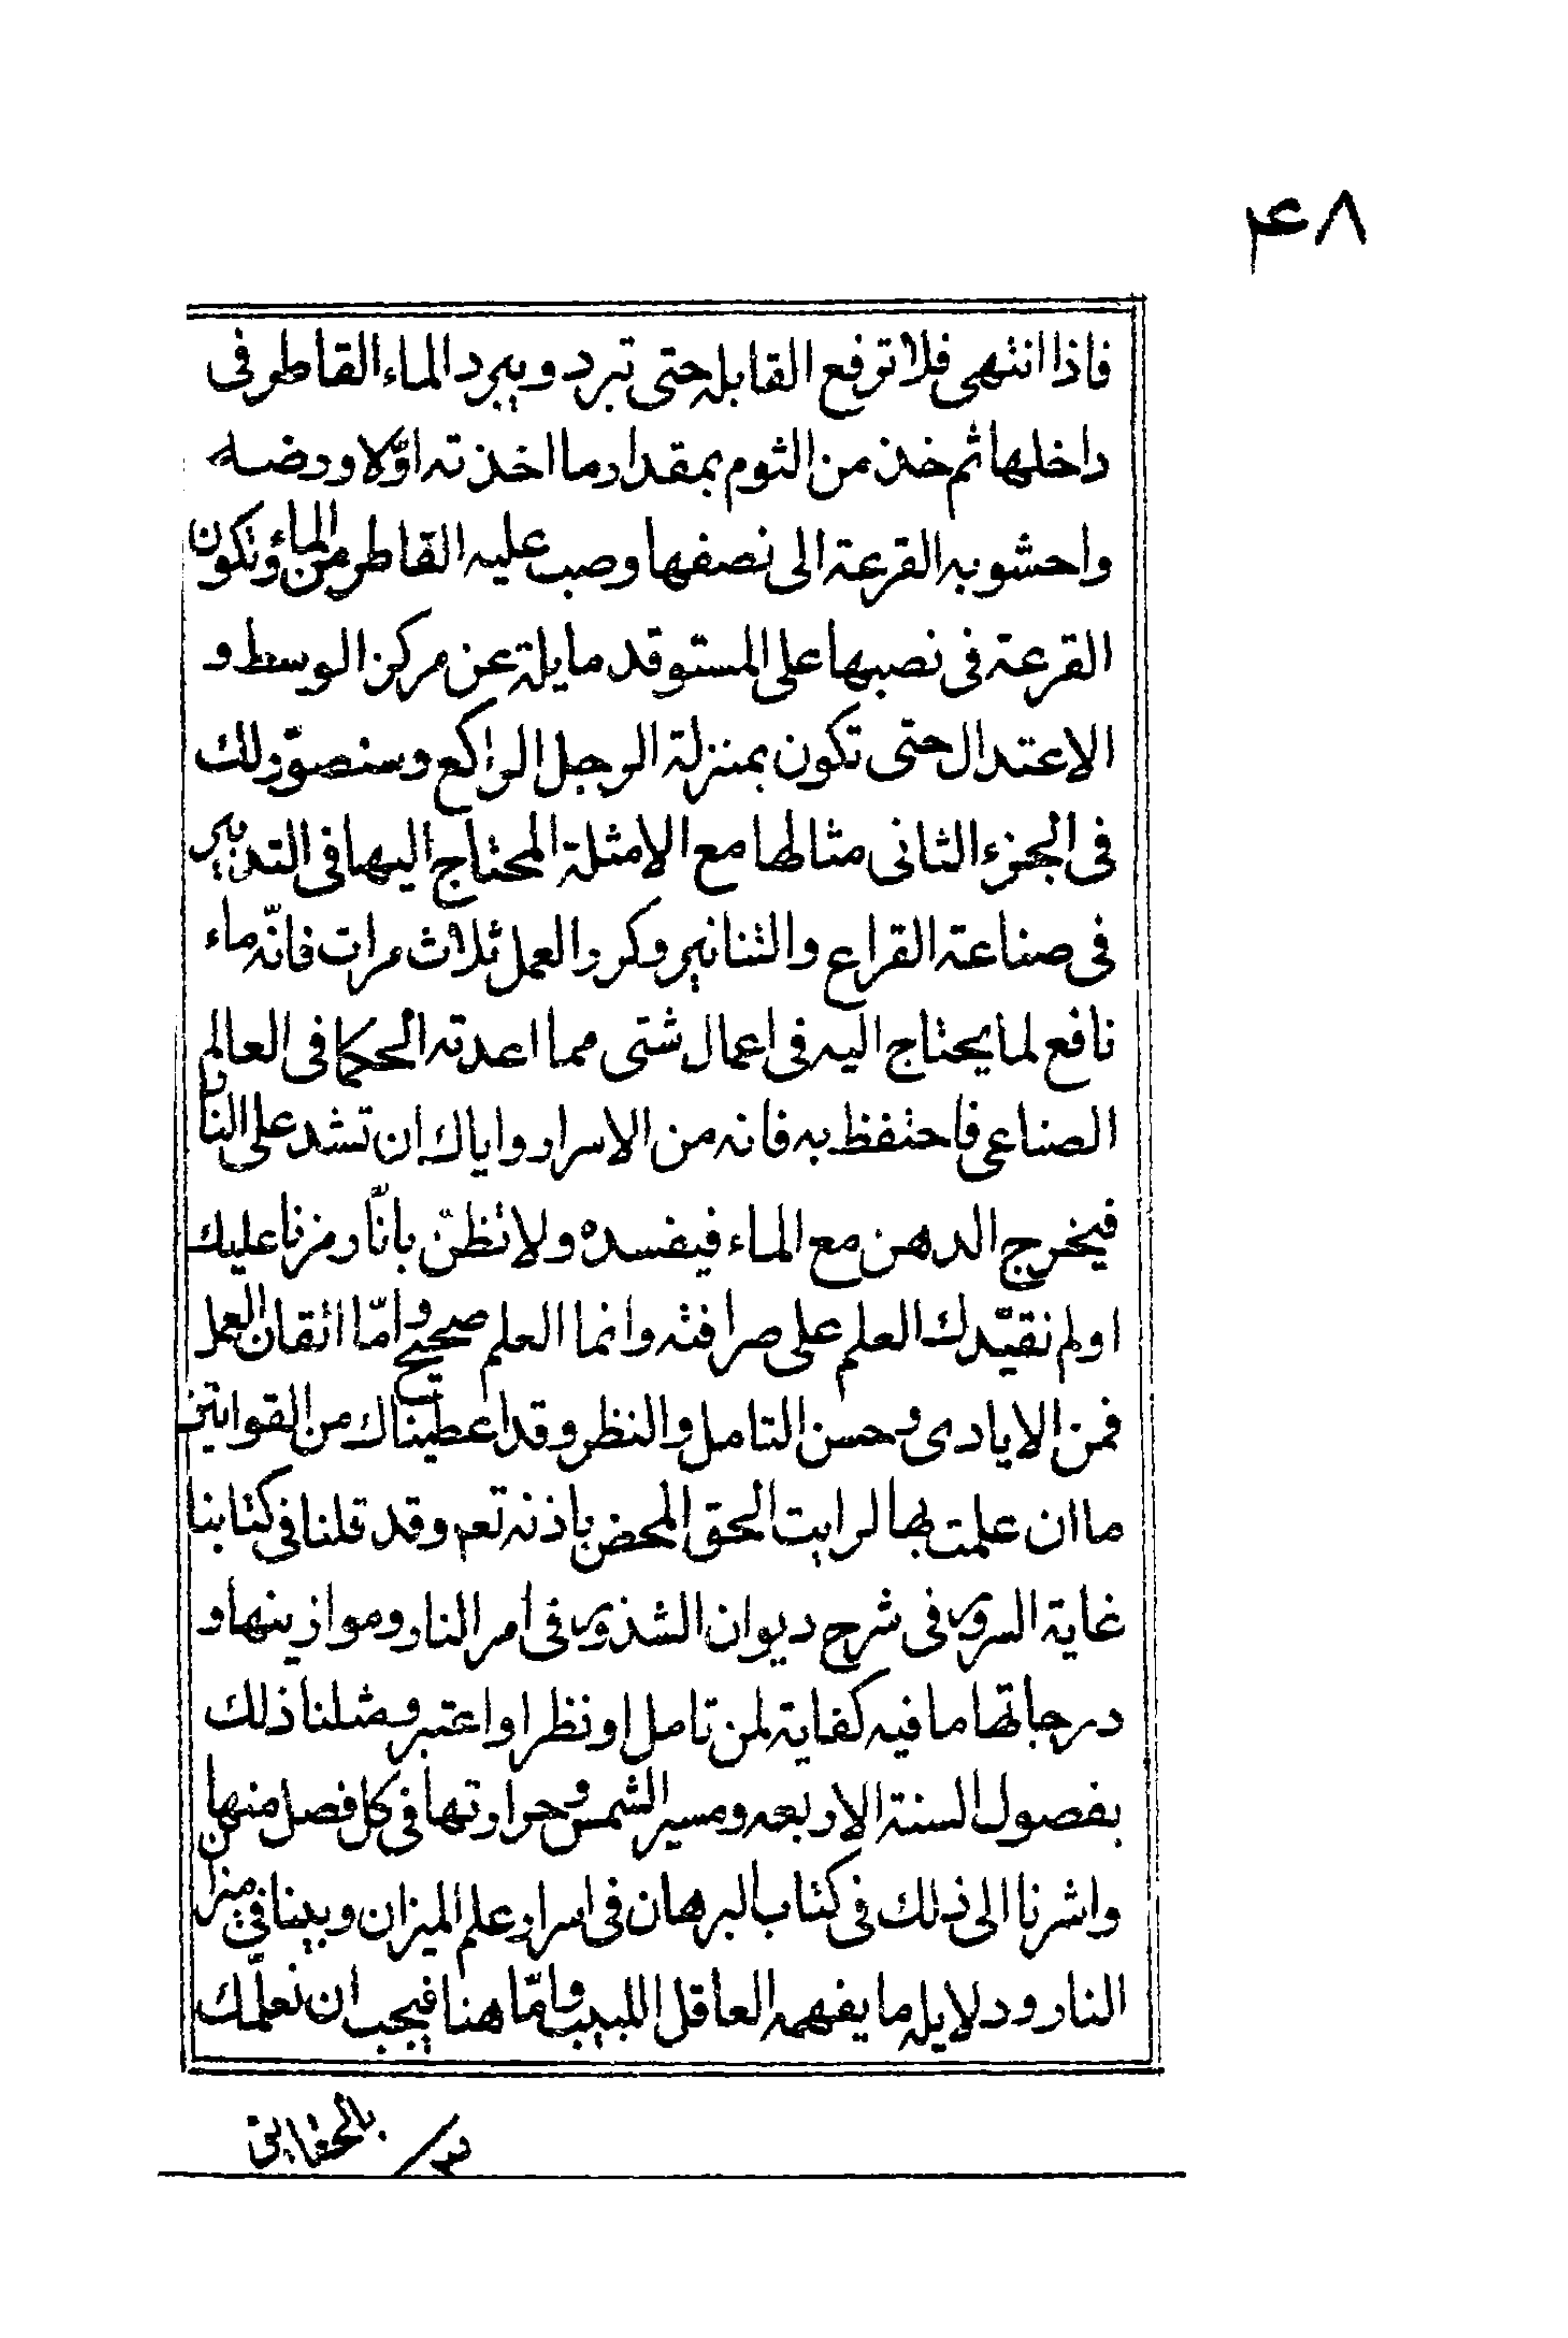 ۴۸
فاذا انتهى فلا ترفع القابله حتى تبرد ويبرد الماء القاطر فى
داخلها ثم خذ من الثوم بمقدار ما اخذته اوّلا ورضه
واحشو به القرعة الى نصفها وصب عليه القاطر من الماء وتكون
القرعة فى نصبها على المستوقد مايلة عن مركز الوسط و
الاعتدال حتى تكون بمنزلة الرجل الراكع وسنصوّر ذلك
فى الجزء الثانى مثالها مع الامثلة المحتاج اليها فى التدبير
فى صناعة القراع والتنانير وكرر العمل ثلاث مرات فانّه ماء
نافع لما يحتاج اليه فى اعمال شتى مما اعدته الحكما فى العالم
الصناعى فاحتفظ به فانه من الاسرار واياك ان تشد على النار
فيخرج الدهن مع الماء فيفسده ولا تظنّ بانّا رمزنا عليك
اولم نقيّد لك العلم على صرافته وانما العلم صحيح وامّا اتقان العمل
فمن الايادى وحسن التامل والنظر وقد اعطيناك من القوانين
ما ان علمت بها لرايت الحق المحض باذنه تعم وقد قلنا فى كتابنا
غاية السرور فى شرح ديوان الشذور فى امر النار وموازينها و
درجاتها ما فيه كفاية لمن تامل او نظر او اعتبر ومثلنا ذلك
بفصول السنة الاربعه ومسير الشمس وحرارتها فى كل فصل منها
واشرنا الى ذلك فى كتاب البرهان فى اسرار علم الميزان وبينا فى ميزان
النار ودلايله ما يفهمه العاقل اللبيب وامّا هنا فيجب ان نعلّمك
بالحقايق